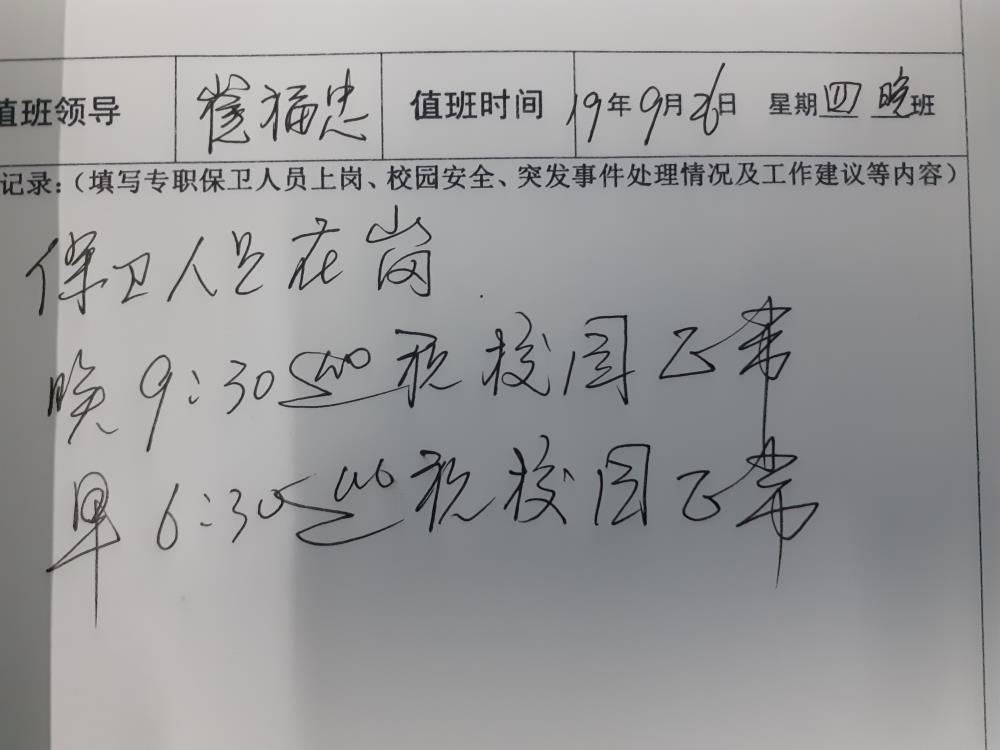 值班领导 崔福忠 值班时间 19年9月26日 星期四 晚班
记录:(填写专职保卫人员上岗、校园安全、突发事件处理情况及工作建议等内容)
保卫人员在岗
晚9:30巡视校园正常
早6:30巡视校园正常